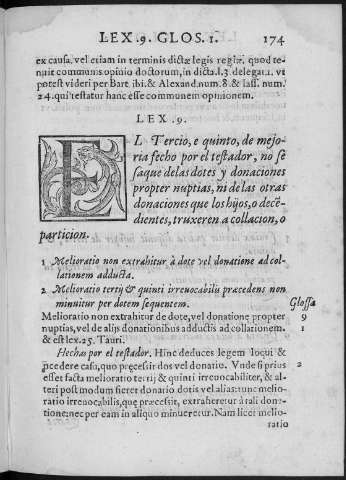 LEX .9. GLOS. 1. 174
ex causa, vel etiam in terminis dictæ legis regiæ, quod te-
nuit communis opinio doctorum, in dicta.l.3. delegat.1. vt
potest videri per Bart. ibi. & Alexand. num. 8. & Iass. num.
24. qui testatur hanc esse communem opinionem.
LEX .9.
EL Tercio, e quinto, de mejo-
ria fecho por el testador, no se
saque de las dotes y donaciones
propter nuptias, ni de las otras
donaciones que los hijos, o decē-
dientes, truxeren a collacion, o
particion.
1 Melioratio non extrahitur à dote vel donatione ad col-
lationem adducta.
2 Melioratio tertij & quinti irreuocabilis præcedens non
minuitur per dotem sequentem.
Glossa
Melioratio non extrahitur de dote, vel donatione propter 9
nuptias, vel de alijs donationibus adductis ad collationem. 1
& est lex.25. Tauri.
Hecho por el testador. Hinc deduces legem loqui &
procedere casu, quo præcessit dos vel donatio. Vnde si prius 2
esset facta melioratio tertij & quinti irreuocabiliter, & al-
teri post modum fieret donatio dotis vel alias: tunc melio-
ratio irreuocabilis, que præcessit, extraheretur à tali dona-
tione: nec per eam in aliquo minueretur. Nam licet melio-
ratio